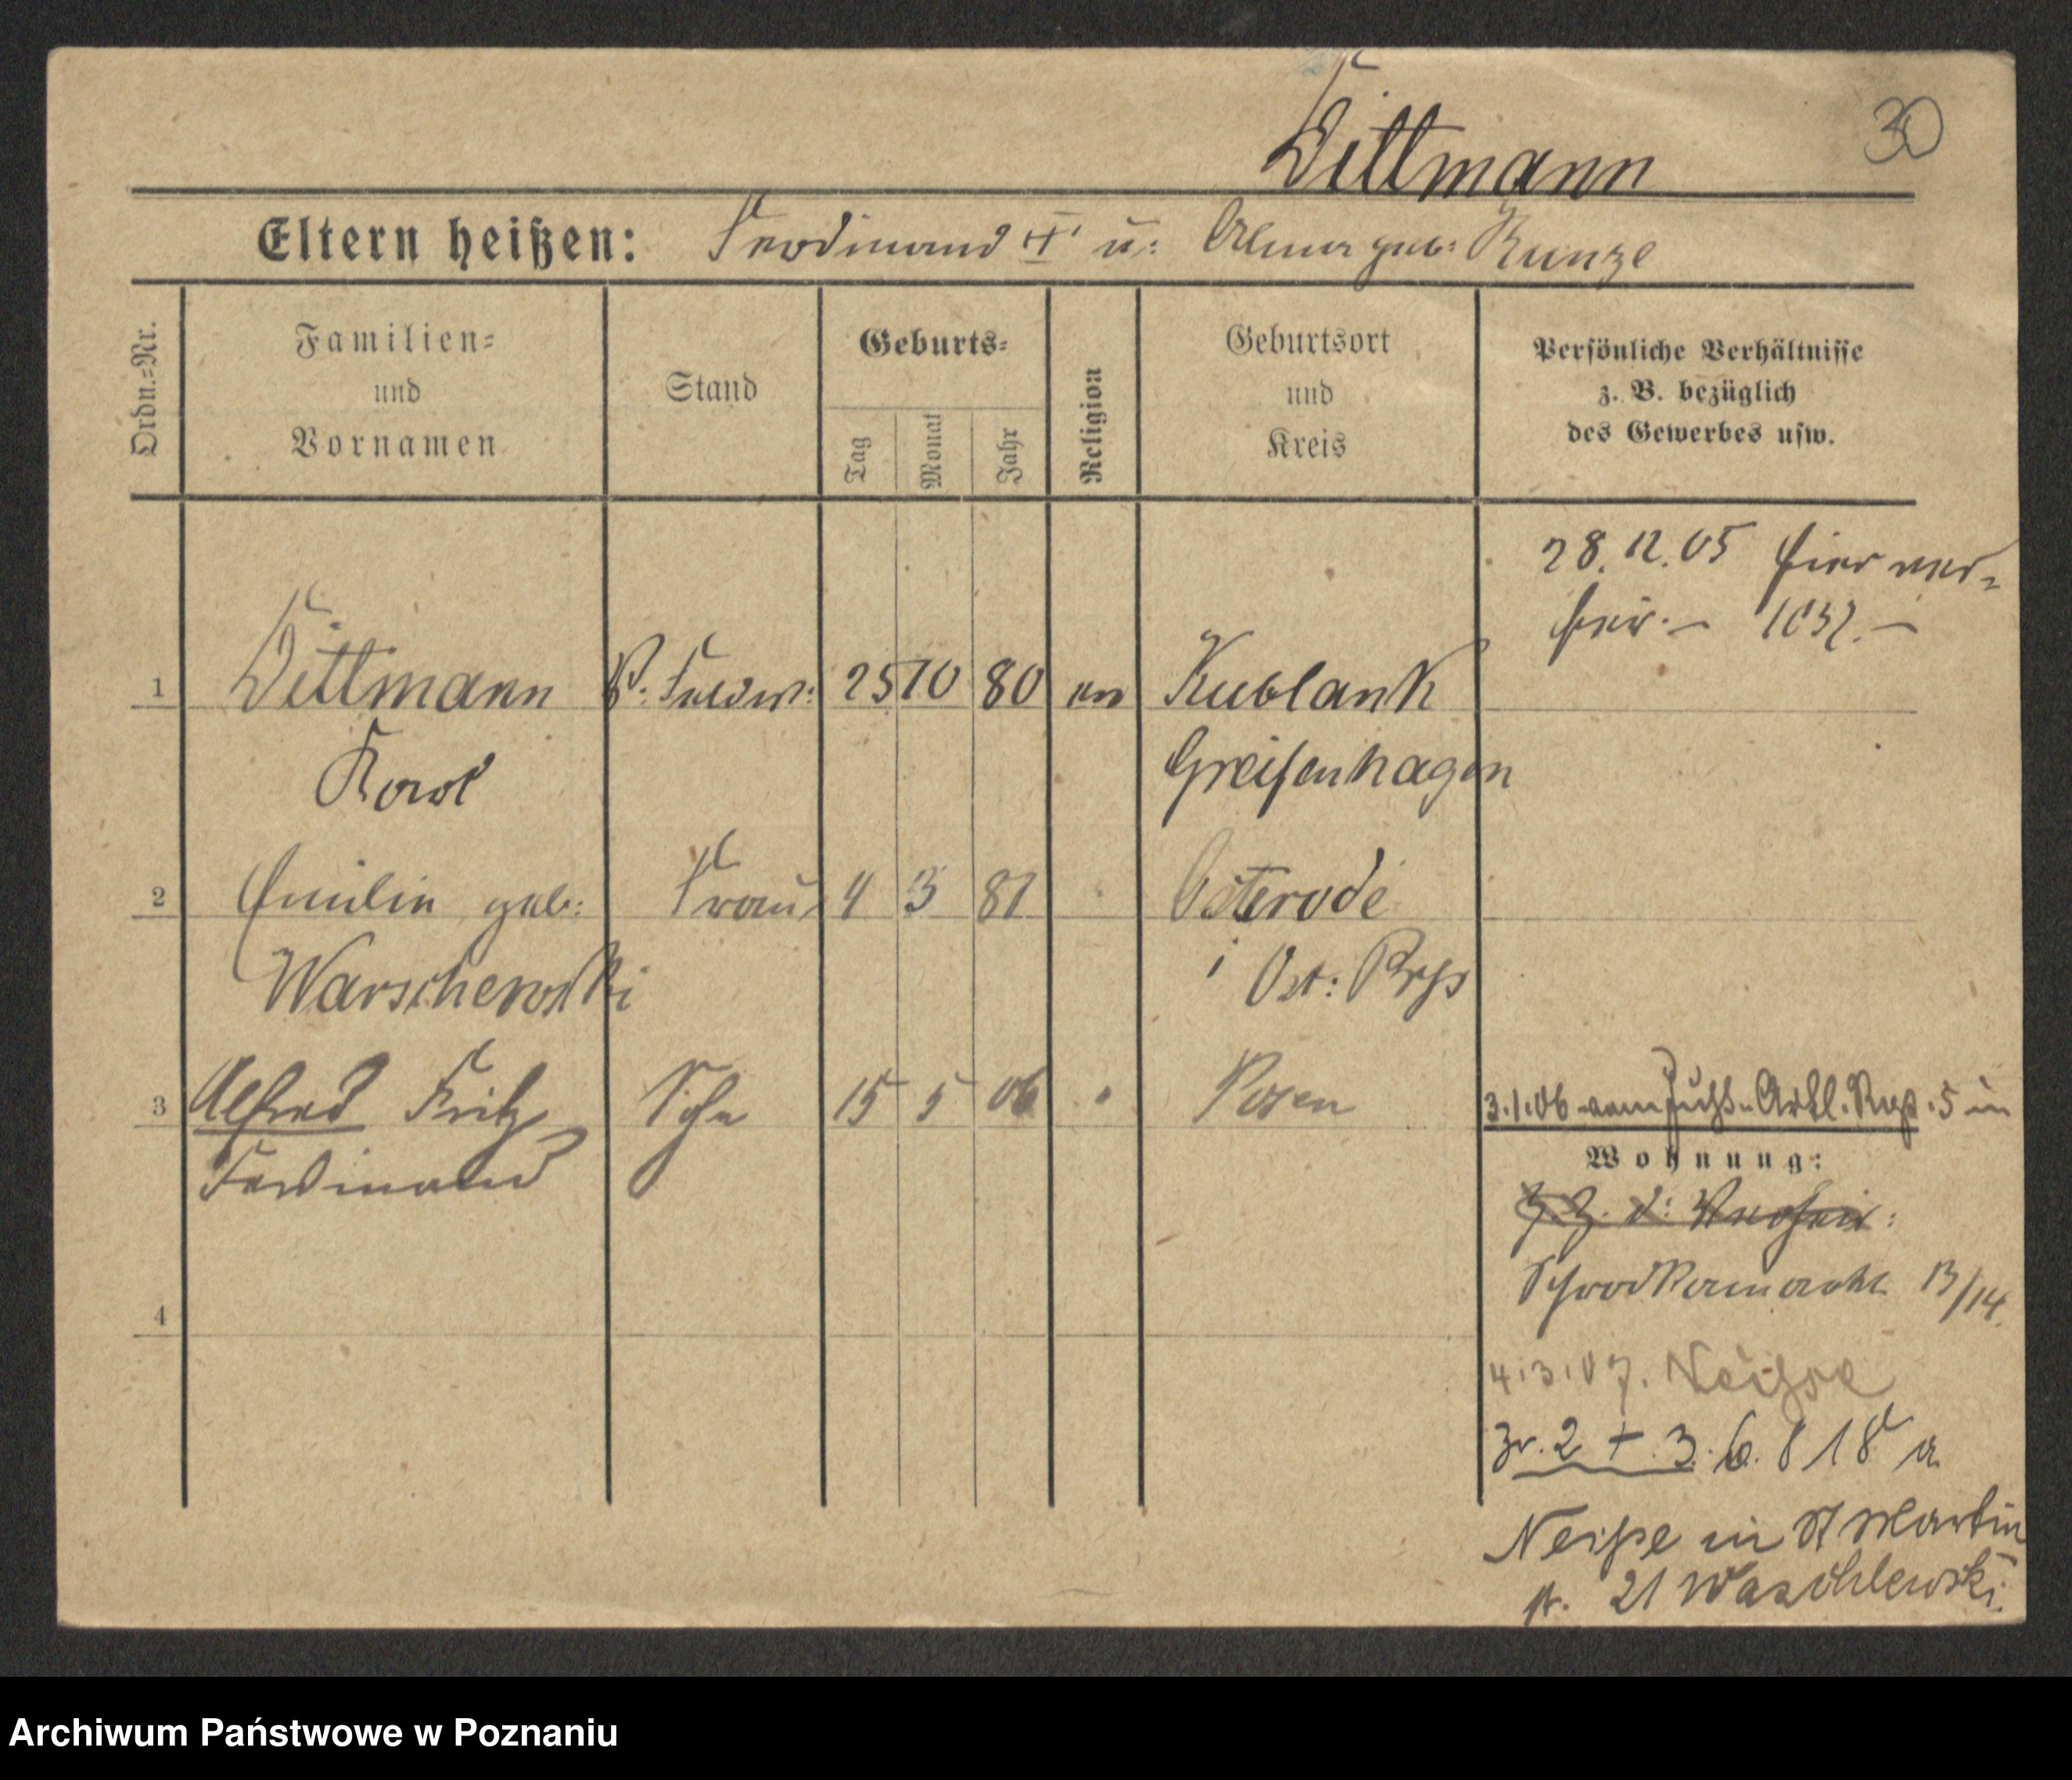 Dittmann
30
Eltern heißen: Ferdinand u: Alma geb: Kunze
Ordn.-Nr.
Familien-
und
Vornamen
Stand
Geburts-
Tag
Monat
Jahr
Religion
Geburtsort
und
Kreis
Persönliche Verhältnisse
z. B. bezüglich
des Gewerbes usw.
28.12.05 hier ver-
heir. — 1037. —
1 Dittmann V. Feldw: 25 10 80 ev Kublank
Karl Greifenhagen
2 Emilie geb: Frau 4 3 81 Osterode
Warschewski i Ost: Prß
3 Alfred Fritz Sohn 15 5 06 Posen
3.1.06 vom Fußt. Artl. Rgt. 5 in
Ferdinand
Wohnung:
z. Z. d: Verheir:
Schrodkamarkt 13/14
4
4.3.07. Neisse
zv. 2 + 3. 6. 8 18 a
Neiße in St Martin
st. 21 Waschlewski
Archiwum Państwowe w Poznaniu